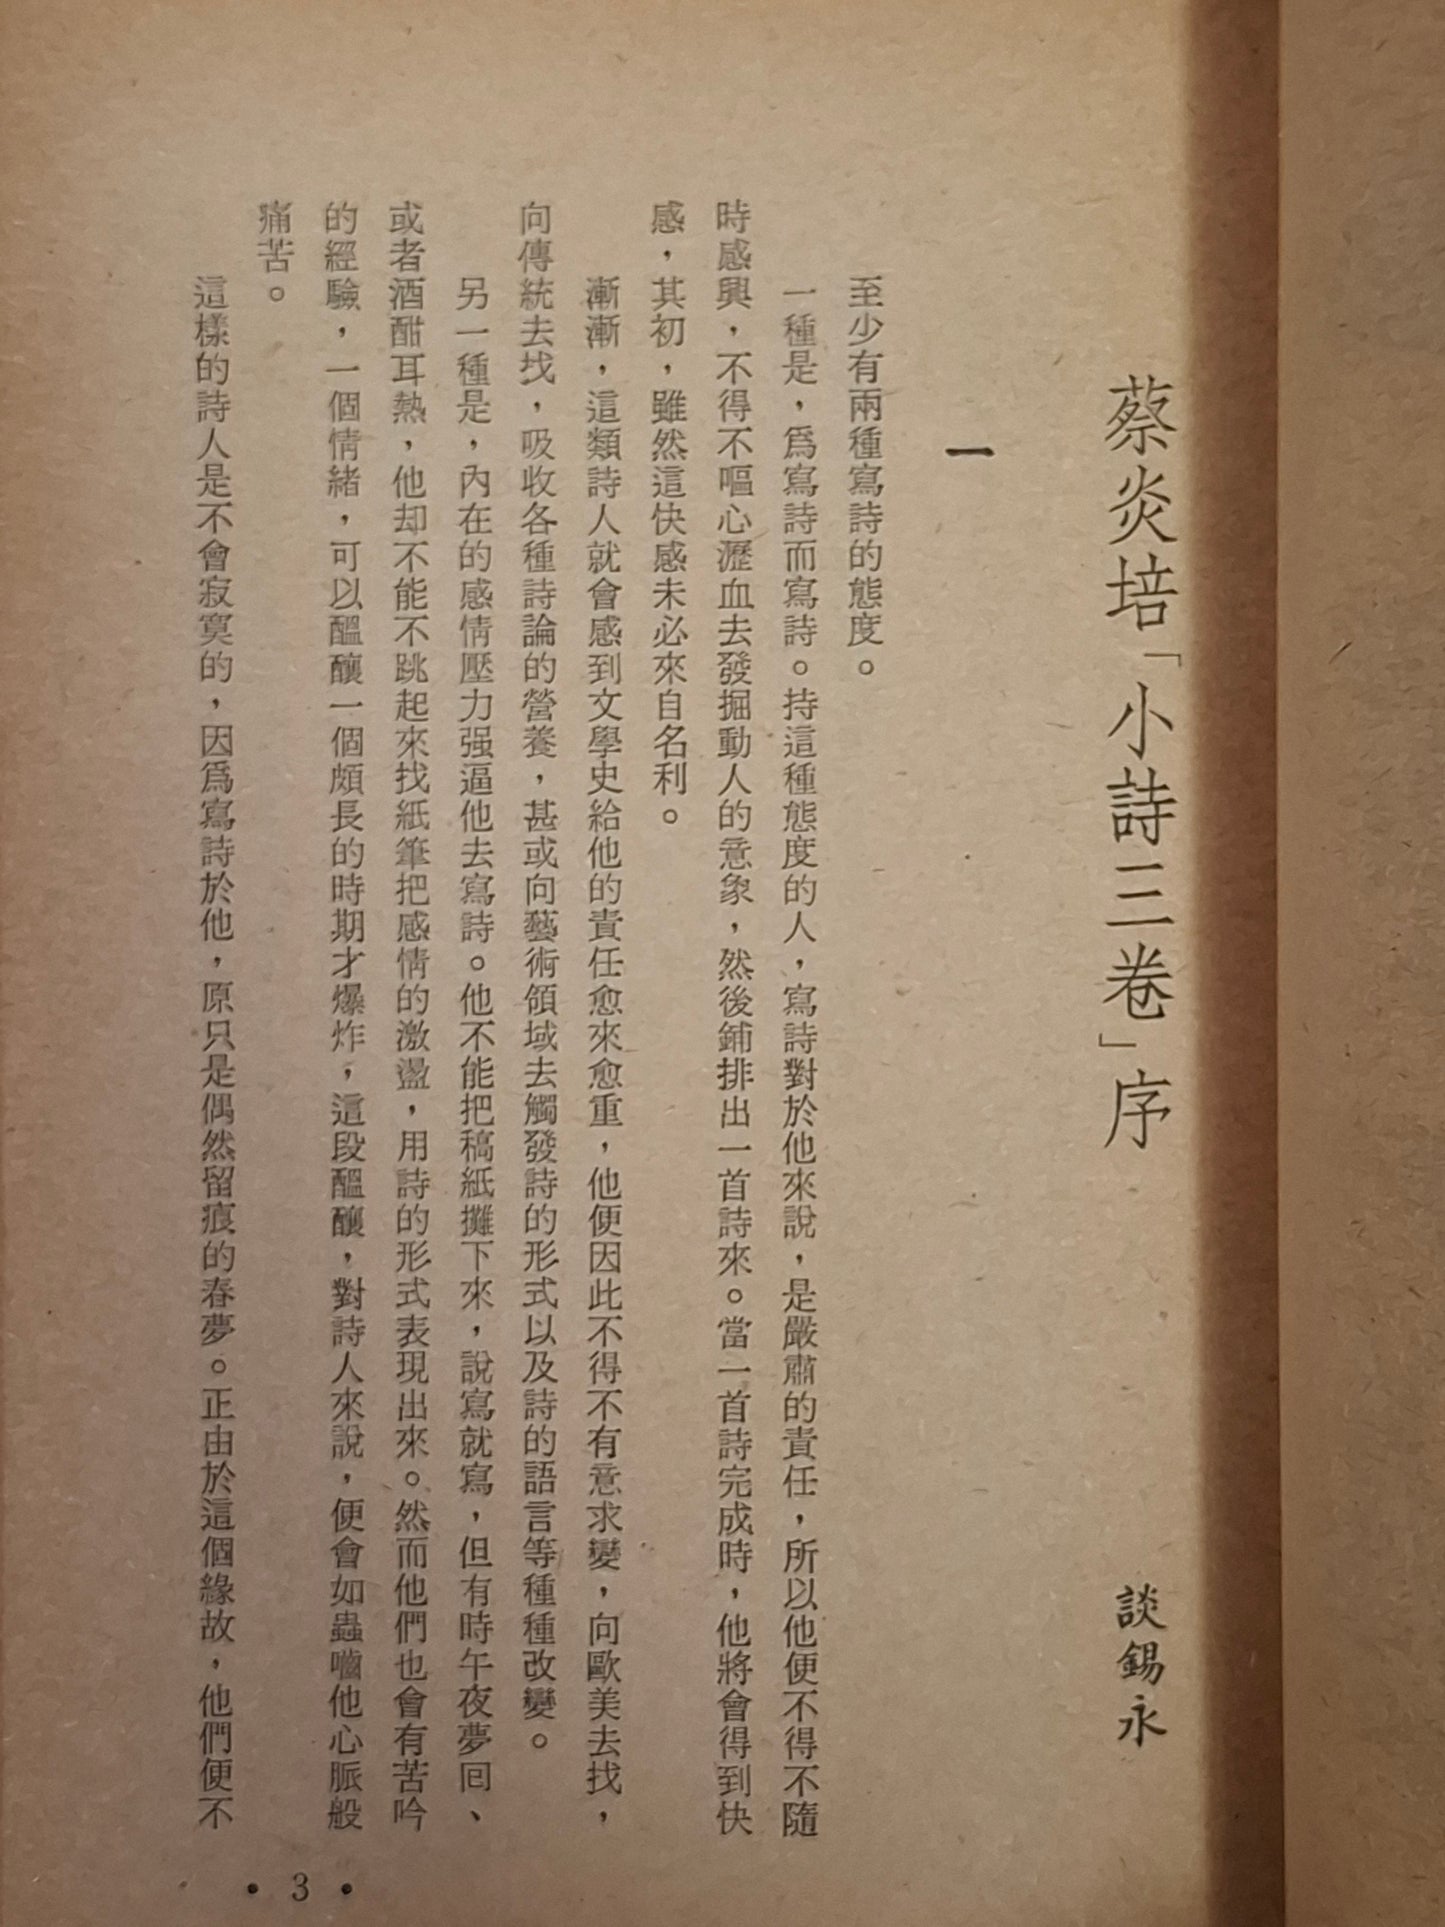 蔡炎培「小詩三卷」序
談錫永
一
至少有兩種寫詩的態度。
一種是，爲寫詩而寫詩。持這種態度的人，寫詩對於他來說，是嚴肅的責任，所以他便不得不隨
時感興，不得不嘔心瀝血去發掘動人的意象，然後鋪排出一首詩來。當一首詩完成時，他將會得到快
感，其初，雖然這快感未必來自名利。
漸漸，這類詩人就會感到文學史給他的責任愈來愈重，他便因此不得不有意求變，向歐美去找，
向傳統去找，吸收各種詩論的營養，甚或向藝術領域去觸發詩的形式以及詩的語言等種種改變。
另一種是，內在的感情壓力强逼他去寫詩。他不能把稿紙攤下來，說寫就寫，但有時午夜夢囘、
或者酒酣耳熱，他却不能不跳起來找紙筆把感情的激盪，用詩的形式表現出來。然而他們也會有苦吟
的經驗，一個情緒，可以醞釀一個頗長的時期才爆炸，這段醞釀，對詩人來說，便會如蟲嚙他心脈般
痛苦。
這樣的詩人是不會寂寞的，因爲寫詩於他，原只是偶然留痕的春夢。正由於這個緣故，他們便不
• 3 •